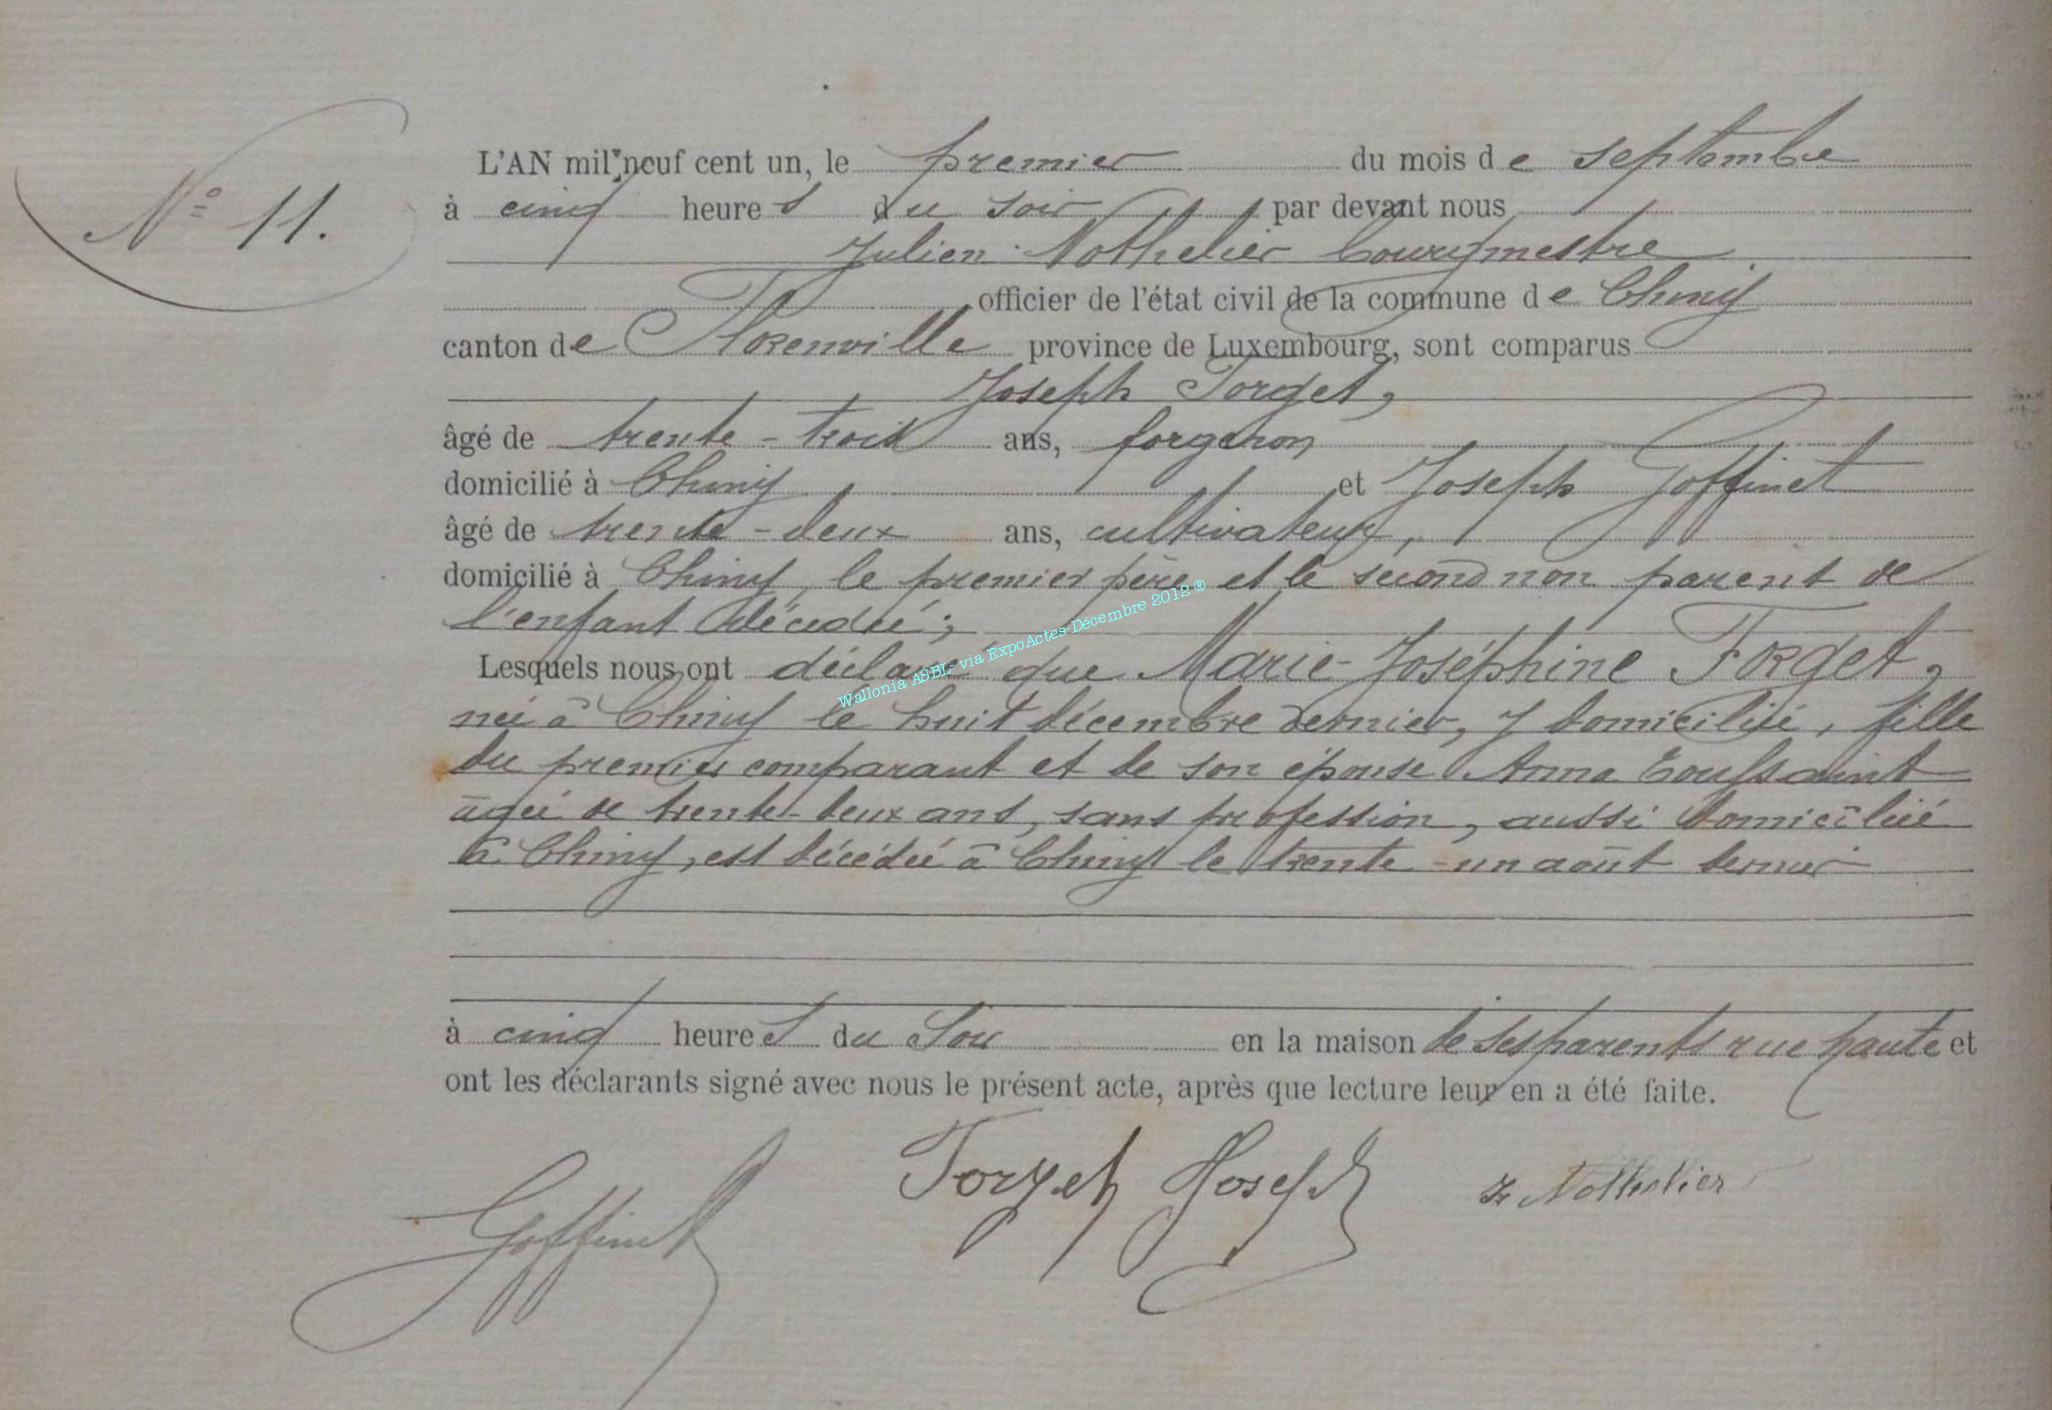 N° 11.
L'AN mil neuf cent un, le premier du mois de septembre
à cinq heures du soir par devant nous
Julien Nothelier bourgmestre
officier de l'état civil de la commune de Chiny
canton de Florenville province de Luxembourg, sont comparus
Joseph Forget,
âgé de trente-trois ans, forgeron
domicilié à Chiny et Joseph Goffinet
âgé de trente-deux ans, cultivateur,
domicilié à Chiny, le premier père et le second non parent de
l'enfant décédée;
Lesquels nous ont déclaré que Marie-Joséphine Forget,
née à Chiny le huit décembre dernier, y domiciliée, fille
du premier comparant et de son épouse Anna Toussaint
âgée de trente-deux ans, sans profession, aussi domiciliée
à Chiny, est décédée à Chiny le trente-un août dernier
à cinq heures du soir en la maison de ses parents rue haute et
ont les déclarants signé avec nous le présent acte, après que lecture leur en a été faite.
Goffinet Forget Joseph J. Nothelier
Wallonia ASBL- via ExpoActes-Décembre 2012 ®